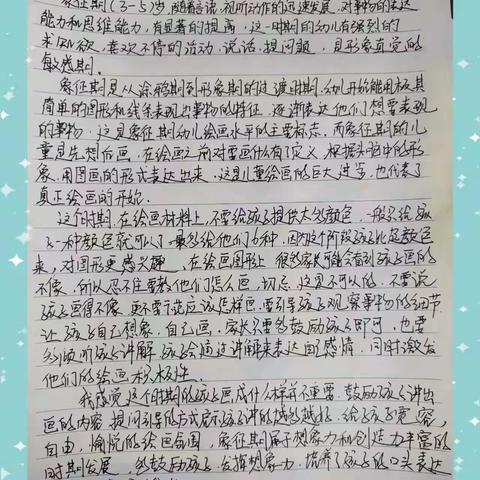 象征期(3-5)岁,随着言语、视听动作的迅速发展,对事物的表达
能力和思维能力,有显著的提高,这一时期的幼儿有强烈的
求知欲,喜欢不停的活动,说话,提问题,是形象直觉的
敏感期。
象征期是从涂鸦期到形象期的过渡时期,幼儿开始能用极其
简单的图形和线条表现出事物的特征,逐渐表达他们想要表现
的事物,这是象征期幼儿绘画水平的主要标志,而象征期的儿
童是先想后画,在绘画之前对要画什么有了定义,根据头脑中的形
象,用图画的形式表达出来,这是儿童绘画的巨大进步,也代表了
真正绘画的开始。
这个时期,在绘画材料上,不要给孩子提供太多颜色,一般只给孩
子一种颜色就可以了,最多给他们6种,因为这个阶段孩子比起颜色
来,对图形更感兴趣,在绘画图形上,很多家长可能会看到孩子画的
不像,所以忍不住要教他们怎么画,切忌,这是不可以的,不要说
孩子画得不像,更不要干范应该怎样画,要引导孩子观察事物的细节,
让孩子自己想象,自己画,家长只要多鼓励孩子即可,也要
多倾听孩子讲解,孩会通过讲解来表达自己感情,同时激发
他们的绘画积极性。
我感觉这个时期的孩子画成什么样并不重要,鼓励孩子讲出
画的内容,提问引导的方式启孩子讲的越多越好,给孩子宽容,
自由,愉悦的绘画氛围,象征期属于想象力和创造力丰富的
时期发展,多鼓励孩子,发挥想象力,培养了孩子的口头表达